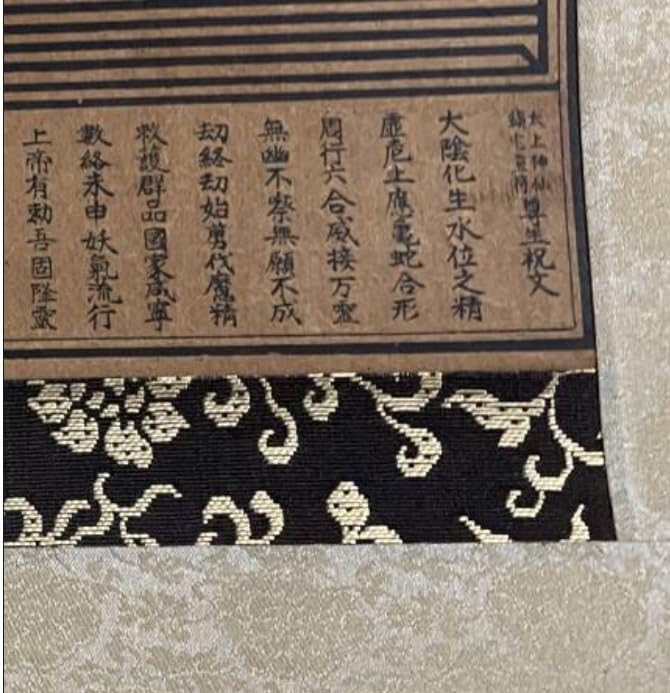 太上神仙
鎮宅霊符
尊星祝文
大陰化生水位之精
虚危上應亀蛇合形
周行六合威接万霊
無幽不察無願不成
刧終刧始剪伐魔精
救護群品國家咸寧
數終未申妖氣流行
上帝有勅吾固降靈